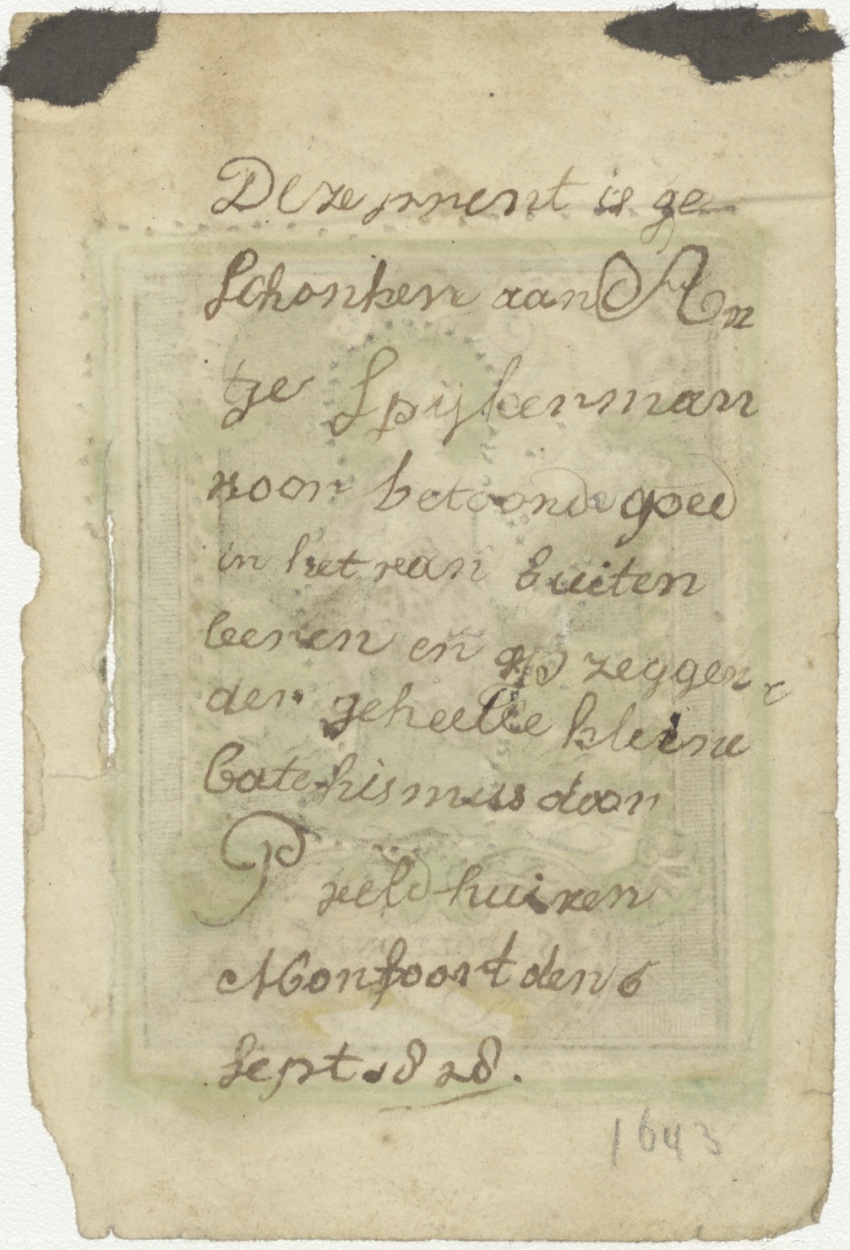 Deze prrent is ge
schonken aan An
tje Spijkerman
voor betoonde goed
in het van buiten
leeren en op zeggen
der geheele kleine
Catechismus door
P veldhuizen
Monfoort den 6
Sept 1828.
1643